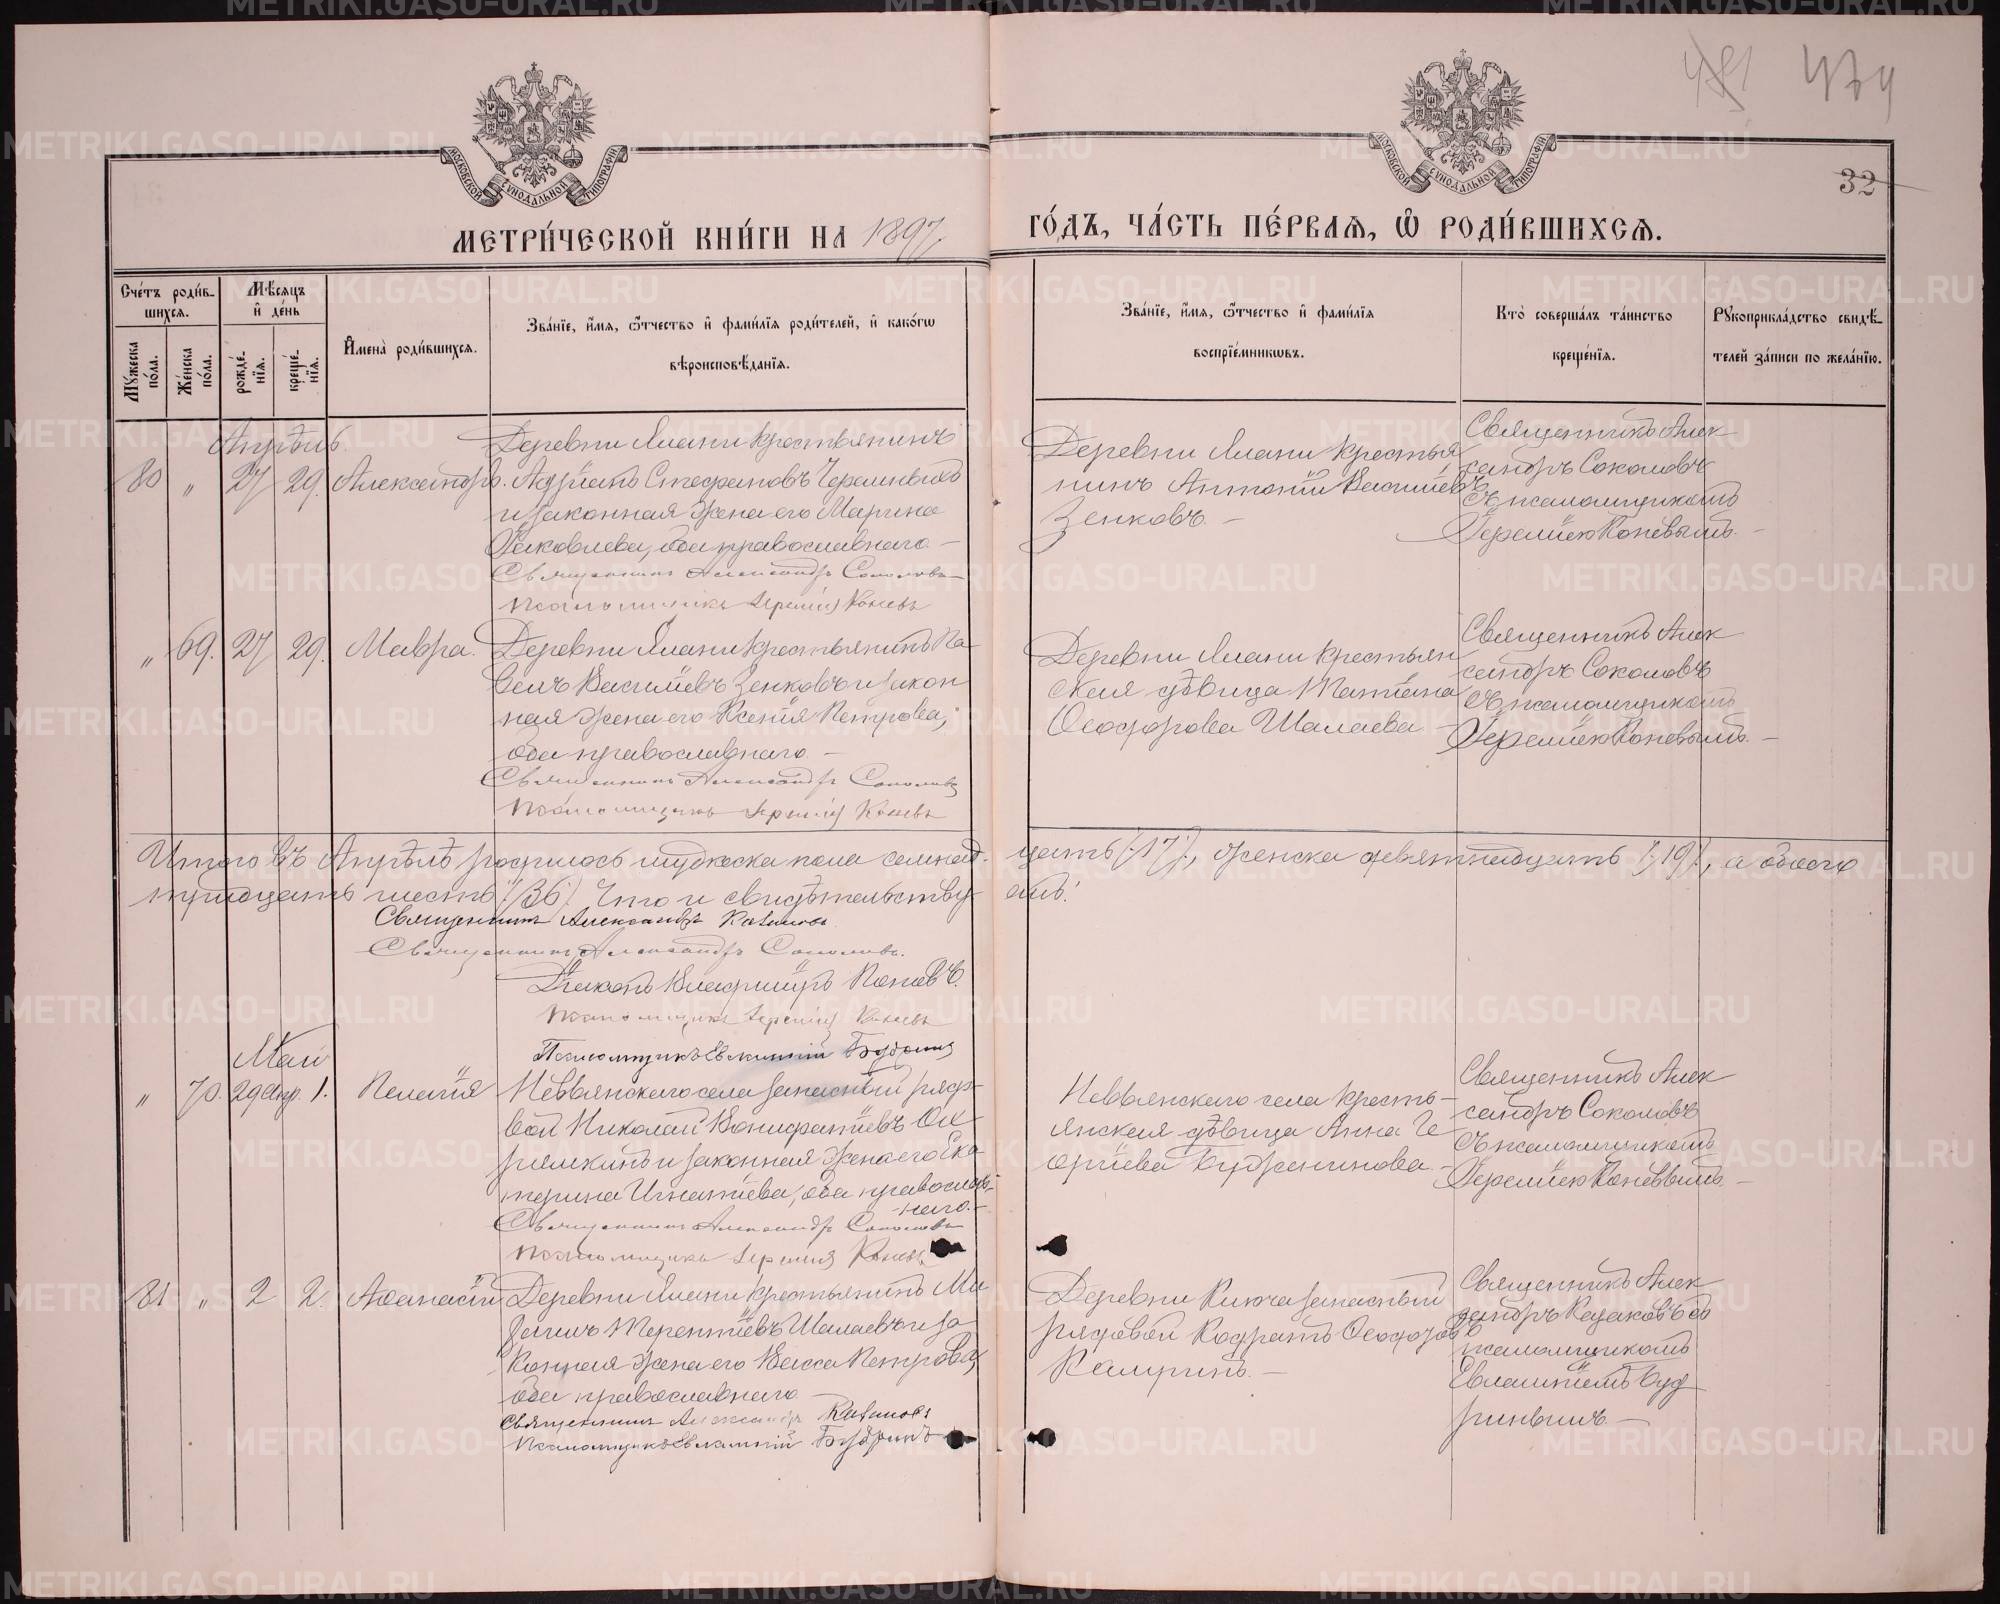 481 474
32
МОСКОВСКОЙ СУНОДАЛЬНОЙ ТИПОГРАФІИ
МОСКОВСКОЙ СУНОДАЛЬНОЙ ТИПОГРАФІИ
МЕТРИ́ЧЕСКОЙ КНИ́ГИ НА 1897
ГО́ДЪ, ЧА́СТЬ ПЕ́РВАѦ, Ѽ РОДИ́ВШИХСѦ.
Сче́тъ роди́в-
шихсѧ.
Мꙋ́жеска по́ла.
Же́нска по́ла.
Мѣ́сѧцъ
и҆ де́нь
рожде́-
нїѧ.
креще́-
нїѧ.
И҆мена̀ роди́вшихсѧ.
Зва́нїе, и҆́мѧ, ѻ҆́тчество и҆ фами́лїѧ роди́телей, и҆ како́гѡ
вѣроисповѣ́данїѧ.
Зва́нїе, и҆́мѧ, ѻ҆́тчество и҆ фами́лїѧ
воспрїе́мникѡвъ.
Кто̀ соверша́лъ та́инство
креще́нїѧ.
Рꙋкоприкла́дство свидѣ́-
телей за́писи по жела́нїю.
Апрѣль.
80 " 27 29. Александръ.
Деревни Ялани крестьянинъ
Адріанъ Стефановъ Черемныхъ
и законная жена его Марина
Яковлева, оба православнаго. –
Священникъ Александръ Соколовъ
Псаломщикъ Іеремія Коневъ
Деревни Ялани крестья
нинъ Антоній Васильевъ
Зенковъ. –
Священникъ Алек
сандръ Соколовъ
съ псаломщикомъ
Іереміею Коневымъ. –
" 69. 27 29. Мавра.
Деревни Ялани крестьянинъ Па
велъ Васильевъ Зенковъ и закон
ная жена его Ксенія Петрова,
оба православнаго. –
Священникъ Александръ Соколовъ
Псаломщикъ Іеремія Коневъ
Деревни Ялани крестьян
ская дѣвица Татіана
Ѳеодорова Шалаева. –
Священникъ Алек
сандръ Соколовъ
съ псаломщикомъ
Іереміею Коневымъ. –
Итого въ Апрѣлѣ родилось мужеска пола семнад-
цать (17), женска девятнадцать (19), а обоего
тридцать шесть (36). Что и свидѣтельству-
емъ:
Священникъ Александръ Казаковъ
Священникъ Александръ Соколовъ.
Діаконъ Владиміръ Поповъ.
Псаломщикъ Іеремія Коневъ
Псаломщикъ Евлампій Будринъ
Май
" 70. 29 Апр. 1. Пелагія
Невьянскаго села запасный рядо-
вой Николай Вонифатіевъ Ох
рямкинъ и законная жена его Ека
терина Игнатіева, оба православ-
наго. –
Священникъ Александръ Соколовъ
Псаломщикъ Іеремія Коневъ
Невьянскаго села кресть-
янская дѣвица Анна Ге
оргіева
Священникъ Алек
сандръ Соколовъ
съ псаломщикомъ
Іереміею Коневымъ. –
81 " 2 2. Аѳанасій
Деревни Ялани крестьянинъ Ми
хаилъ Терентіевъ Шалаевъ и за
конная жена его Васса Петрова,
оба православнаго –
Священникъ Александръ Казаковъ
Псаломщикъ Евлампій Будринъ
Деревни Ключа запасный
рядовой Кодратъ Ѳеодоровъ
Камринъ. –
Священникъ Алек
сандръ Казаковъ съ
псаломщикомъ
Евлампіемъ Буд
ринымъ. –